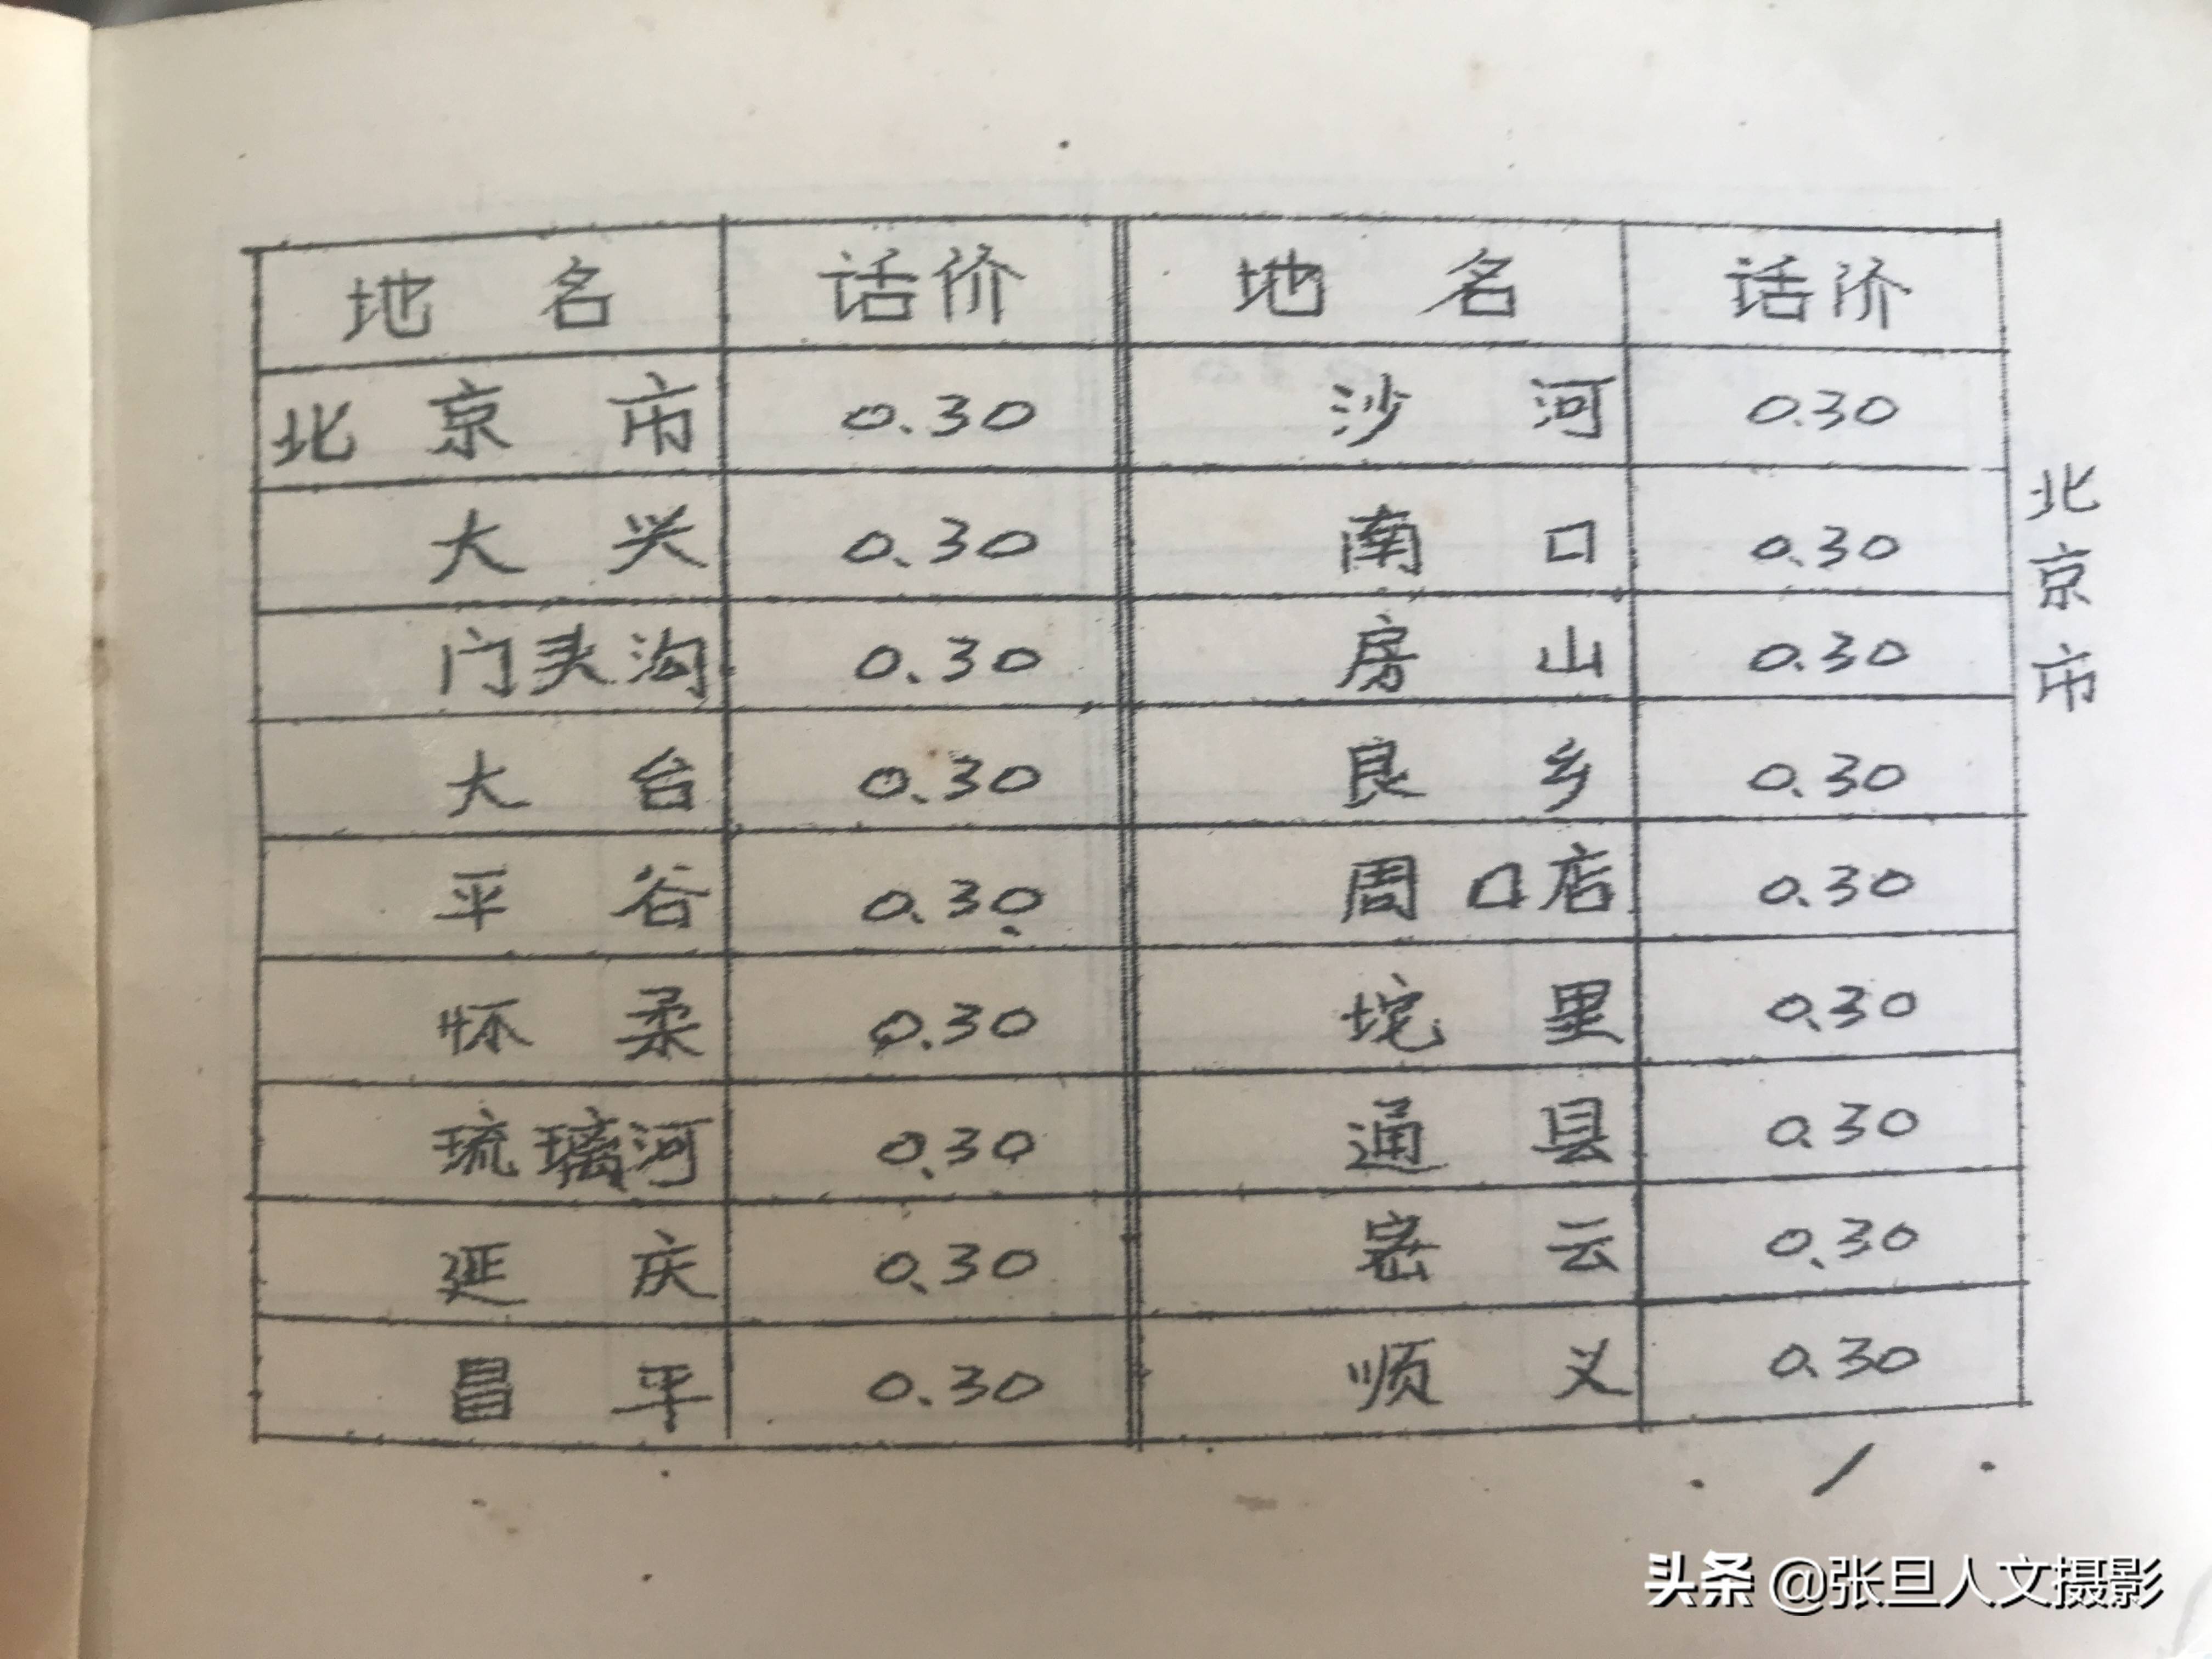 地名 话价 地名 话价
北京市 0.30 沙河 0.30
大兴 0.30 南口 0.30
门头沟 0.30 房山 0.30
大台 0.30 良乡 0.30
平谷 0.30 周口店 0.30
怀柔 0.30 坨里 0.30
琉璃河 0.30 通县 0.30
延庆 0.30 密云 0.30
昌平 0.30 顺义 0.30
北京市
1
头条 @张旦人文摄影